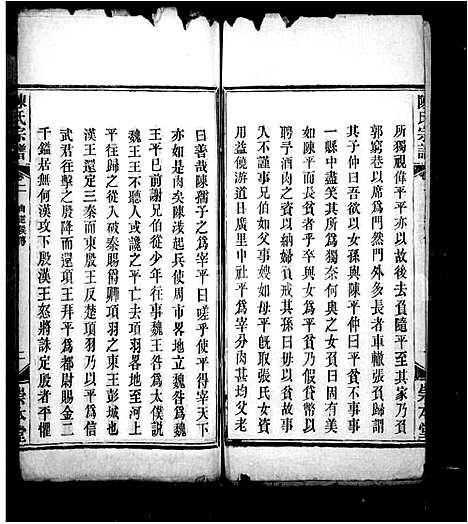 陳氏宗譜
所獨視偉平平亦以故後去負隨平至其家乃負
郭窮巷以席爲門然門外多長者車轍張負歸謂
其子仲曰吾欲以女孫與陳平仲曰平貧不事事
一縣中盡笑其所爲獨奈何與之女負曰固有美
如陳平而長貧者乎卒與女爲平貧乃假貸幣以
聘予酒肉之資以納婦負戒其孫曰毋以貧故事
人不謹事兄伯如父事嫂如母平旣取張氏女資
用益饒游道日廣里中社平爲宰分肉甚均父老
崇本堂
曰善哉陳孺子之爲宰平曰嗟乎使平得宰天下
亦如是肉矣陳涉起兵使周市畧地立魏咎爲魏
王平已前謝兄伯從少年往事魏王咎爲太僕說
魏王王不聽人或讒之平亡去項羽畧地至河上
平往歸之從入破秦賜爵卿項羽之東王彭城也
漢王還定三秦而東殷王反楚項羽乃以平爲信
武君往擊之殷降而還項王拜平爲都尉賜金二
千鎰居無何漢攻下殷漢王怒將誅定殷者平懼
陳氏宗譜
崇本堂